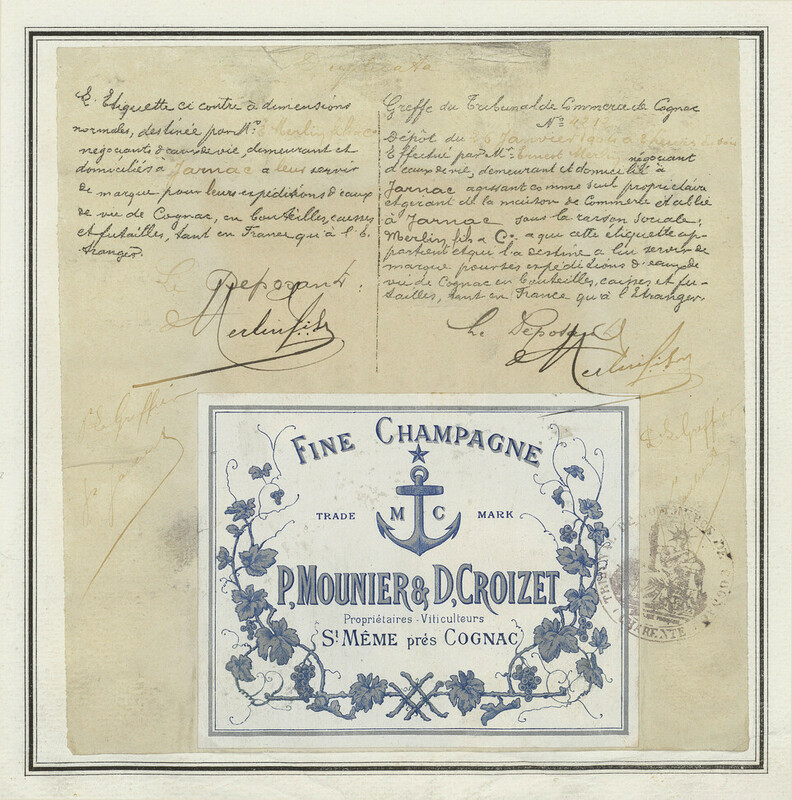 Duplicata
L'Etiquette ci contre à dimensions
normales, destinée par Mrs E. Merlin fils & Co
négociants d'eaux de vie, demeurant et
domiciliés à Jarnac a leur servir
de marque pour leurs expéditions d'eaux
de vie de Cognac, en bouteilles, caisses
et futailles, tant en France qu'à l'E-
tranger.
Le Deposant:
Merlin fils
Greffe du Tribunal de Commerce de Cognac
No
Dépôt du 26 Janvier
Effectué par Mr Ernest Merlin négociant
d'eaux de vie, demeurant et domicilié à
Jarnac agissant comme seul propriétaire
et gérant de la maison de Commerce établie
à Jarnac sous la raison sociale:
Merlin fils & Co. a que cette étiquette ap-
partient et qui l'a destine a lui servir de
marque pour ses expéditions d'eaux de
vie de Cognac en bouteilles, caisses et fu-
tailles, tant en France qu'à l'Etranger.
Le Deposant
Merlin fils
Le Greffier
Le Greffier
FINE CHAMPAGNE
TRADE M C MARK
P. MOUNIER & D. CROIZET
Propriétaires - Viticulteurs
St MÊME prés COGNAC
TRIBUNAL DE COMMERCE DE COGNAC
CHARENTE